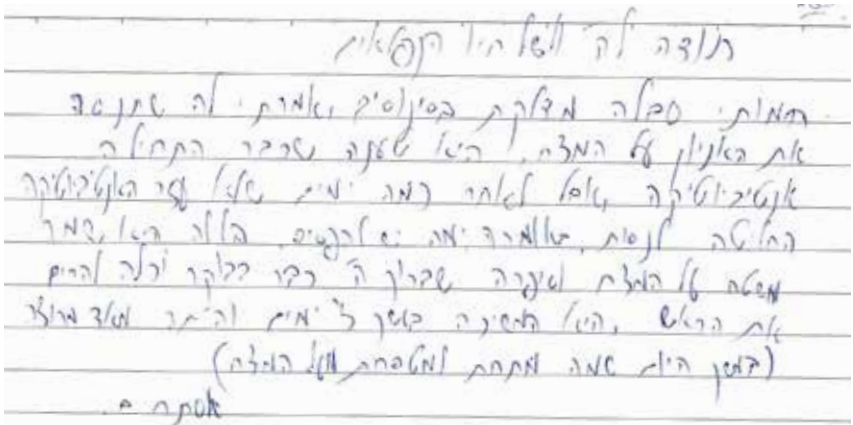 תודה לה' ולשל היו הנפלאים
חמותי סבלה מדלקת בסינוסים, אמרתי לה שתנסה
את האניון על המצח. היא טענה שכבר התחילה
אנטיביוטיקה, אבל לאחר כמה ימים שלא עזר האנטיביוטיקה
החליטה לנסות, באומרה: מה יש להפסיד. בלילה היא שמה
על המצח וסיפרה שברוך ה' כבר בבוקר יכלה להרים
את הראש, היא המשיכה במשך ימים והיתה מאד מרוצה
(במשך היום שמה מתחת למטפחת מעל המצח)
אסתר .ם